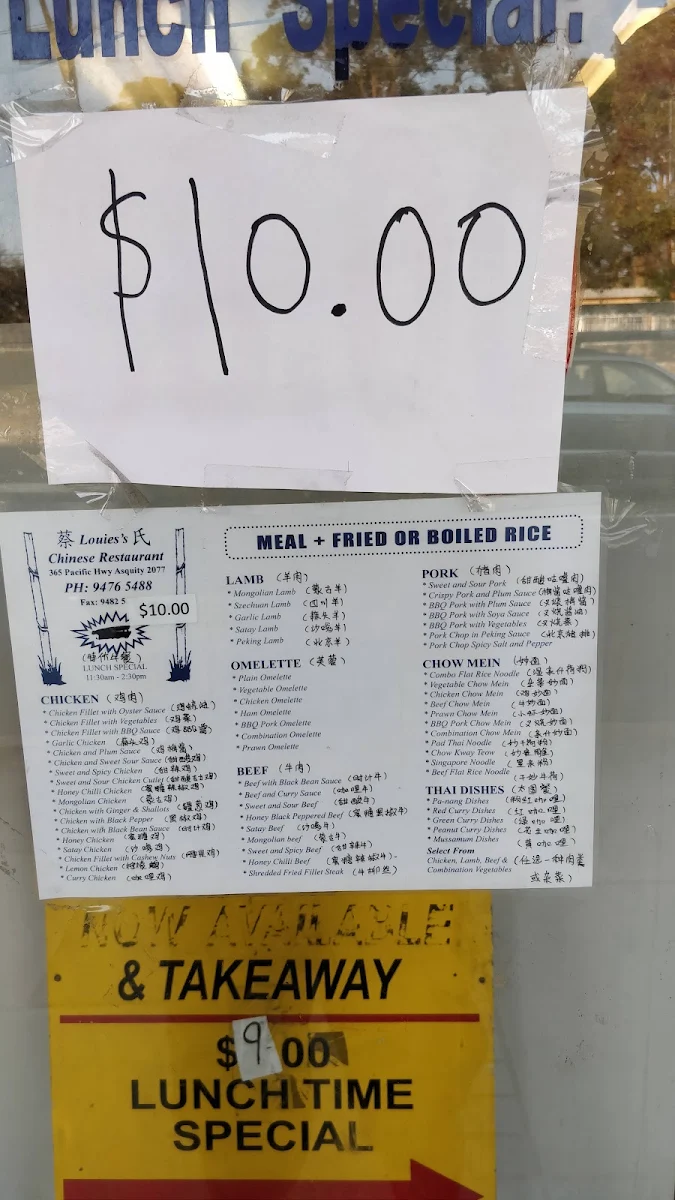 Lunch Special.
$10.00
蔡 Louies's 氏
Chinese Restaurant
365 Pacific Hwy Asquity 2077
PH: 9476 5488
Fax: 9482 5
$10.00
LUNCH SPECIAL
11:30am - 2:30pm
CHICKEN (鸡肉)
* Chicken Fillet with Oyster Sauce
* Chicken Fillet with Vegetables (鸡菜)
* Chicken Fillet with BBQ Sauce
* Garlic Chicken (蒜头鸡)
* Chicken and Plum Sauce
* Chicken and Sweet Sour Sauce (甜酸鸡)
* Sweet and Spicy Chicken (甜辣鸡)
* Sweet and Sour Chicken Cutlet
* Honey Chilli Chicken (蜜糖辣椒鸡)
* Mongolian Chicken (蒙古鸡)
* Chicken with Ginger & Shallots
* Chicken with Black Pepper (黑椒鸡)
* Chicken with Black Bean Sauce
* Honey Chicken (蜜糖鸡)
* Satay Chicken (沙嗲鸡)
* Chicken Fillet with Cashew Nuts
* Lemon Chicken
* Curry Chicken (咖喱鸡)
MEAL + FRIED OR BOILED RICE
LAMB (羊肉)
* Mongolian Lamb (蒙古羊)
* Szechuan Lamb (四川羊)
* Garlic Lamb (蒜头羊)
* Satay Lamb (沙嗲羊)
* Peking Lamb (北京羊)
OMELETTE (芙蓉)
* Plain Omelette
* Vegetable Omelette
* Chicken Omelette
* Ham Omelette
* BBQ Pork Omelette
* Combination Omelette
* Prawn Omelette
BEEF (牛肉)
* Beef with Black Bean Sauce
* Beef and Curry Sauce (咖喱牛)
* Sweet and Sour Beef (甜酸牛)
* Honey Black Peppered Beef (蜜糖黑椒牛)
* Satay Beef (沙嗲牛)
* Mongolian beef (蒙古牛)
* Sweet and Spicy Beef (甜辣牛)
* Honey Chilli Beef (蜜糖辣椒牛)
* Shredded Fried Fillet Steak (牛柳丝)
PORK (猪肉)
* Sweet and Sour Pork (甜酸咕噜肉)
* Crispy Pork and Plum Sauce
* BBQ Pork with Plum Sauce
* BBQ Pork with Soya Sauce
* BBQ Pork with Vegetables (叉烧菜)
* Pork Chop in Peking Sauce (北京猪排)
* Pork Chop Spicy Salt and Pepper
CHOW MEIN (炒面)
* Combo Flat Rice Noodle
* Vegetable Chow Mein (杂菜炒面)
* Chicken Chow Mein (鸡炒面)
* Beef Chow Mein (牛炒面)
* Prawn Chow Mein (小虾炒面)
* BBQ Pork Chow Mein (叉烧炒面)
* Combination Chow Mein
* Pad Thai Noodle
* Chow Kway Teow
* Singapore Noodle (星洲粉)
* Beef Flat Rice Noodle
THAI DISHES (太国餐)
* Pa-nang Dishes
* Red Curry Dishes
* Green Curry Dishes
* Peanut Curry Dishes
* Mussamum Dishes
Select From
Chicken, Lamb, Beef & (任选一种肉类
Combination Vegetables 或杂菜)
NOW AVAILABLE
& TAKEAWAY
$9.00
LUNCH TIME
SPECIAL